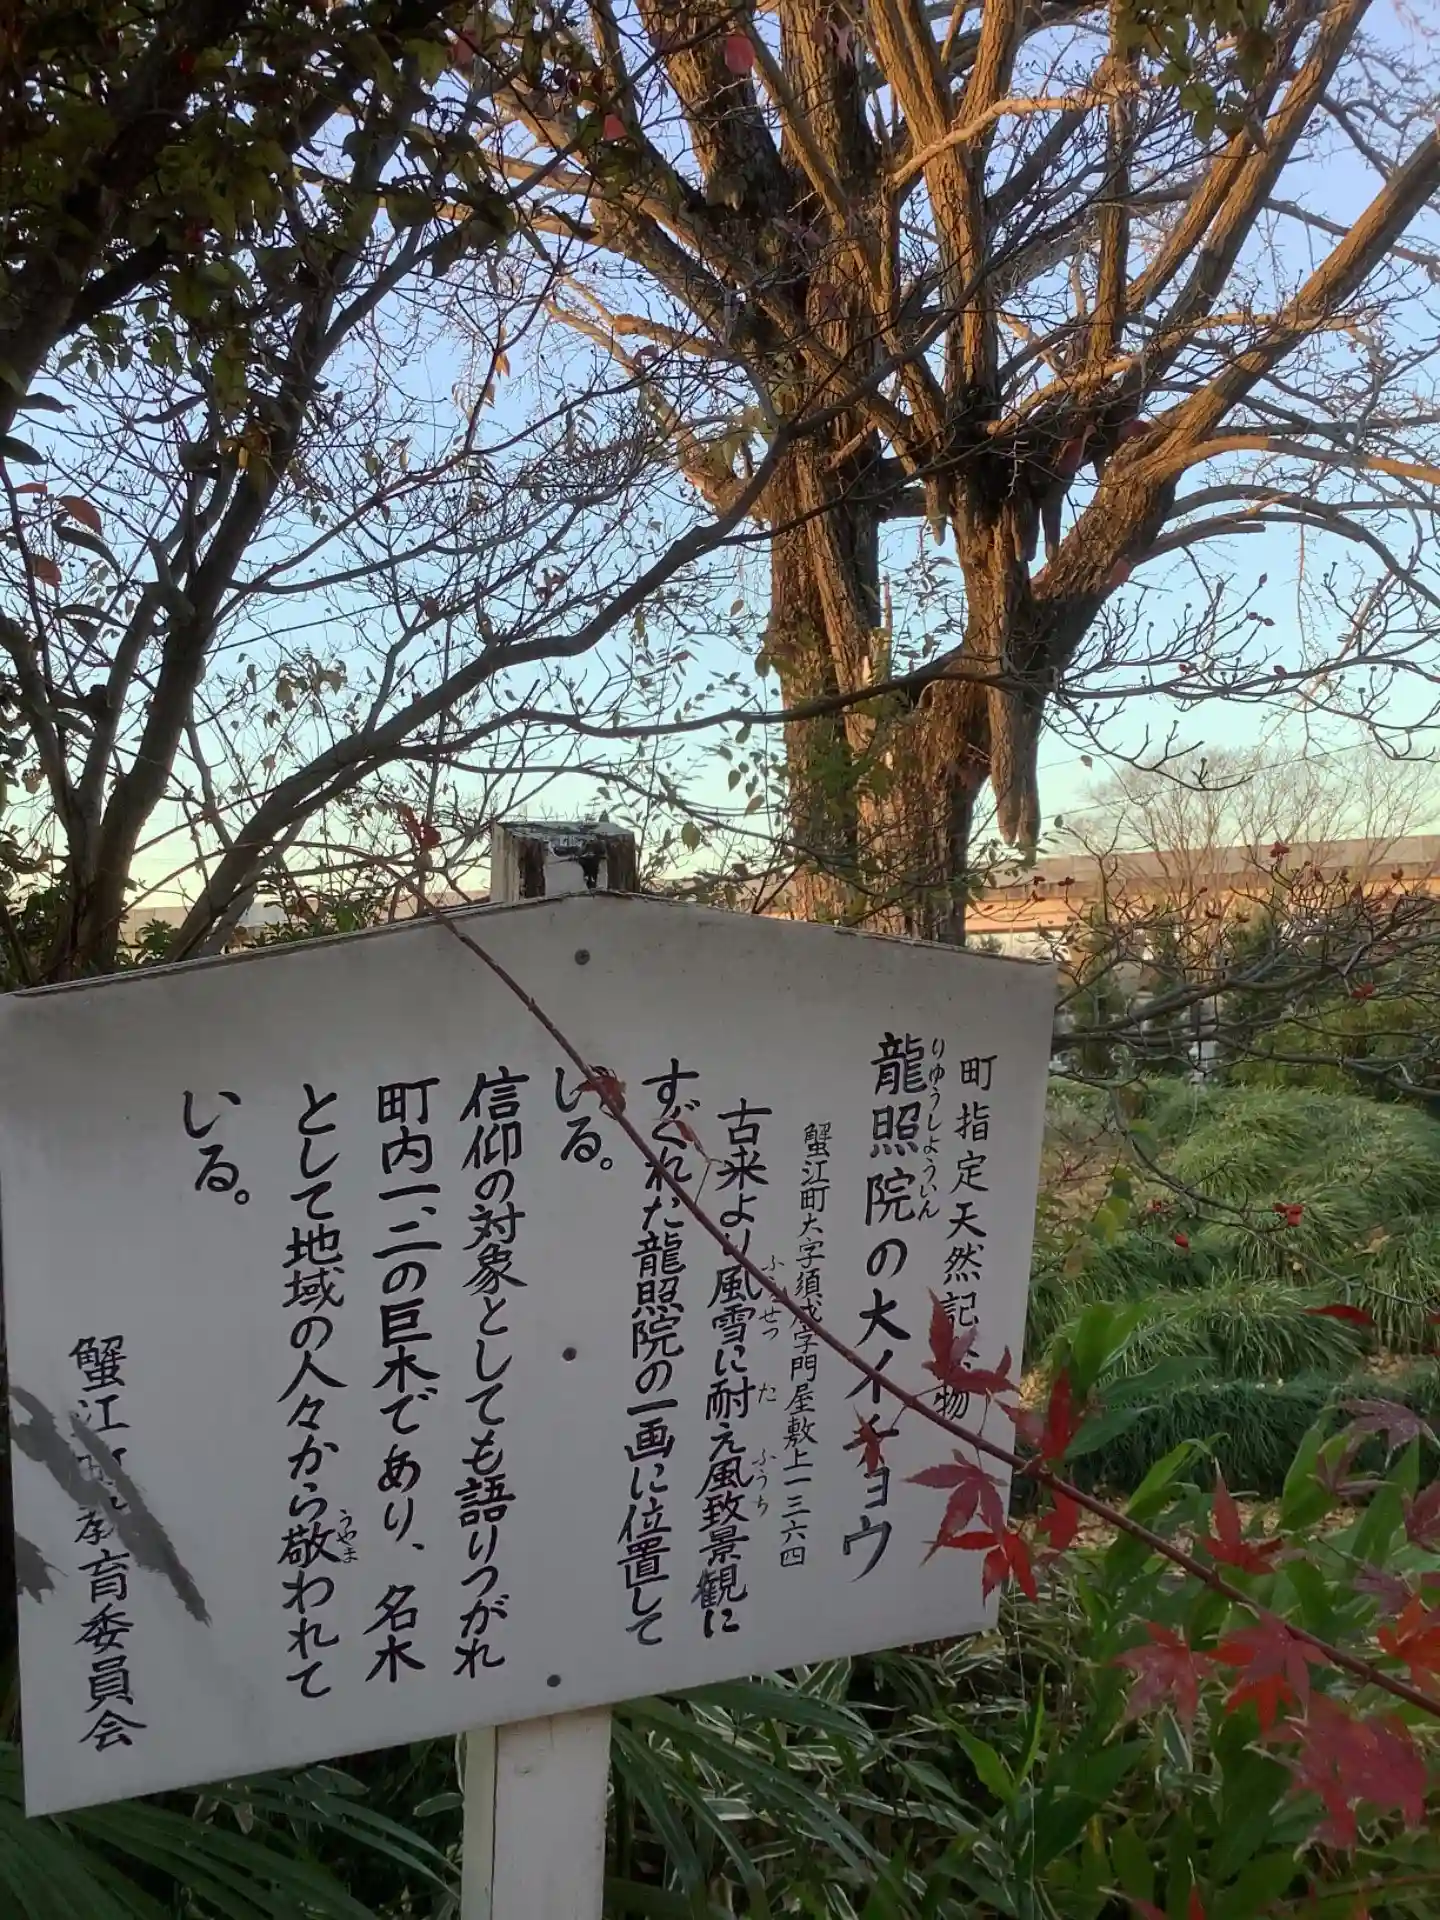 町指定天然記 物
りゅうしょういん
龍照院の大イチョウ
蟹江町大字須成字門屋敷上一三六四
古来より風雪に耐え風致景観に
ふうせつ た ふうち
すぐれた龍照院の一画に位置して
いる。
信仰の対象としても語りつがれ
町内一、二の巨木であり、名木
として地域の人々から敬われて
うやま
いる。
蟹江町 育委員会